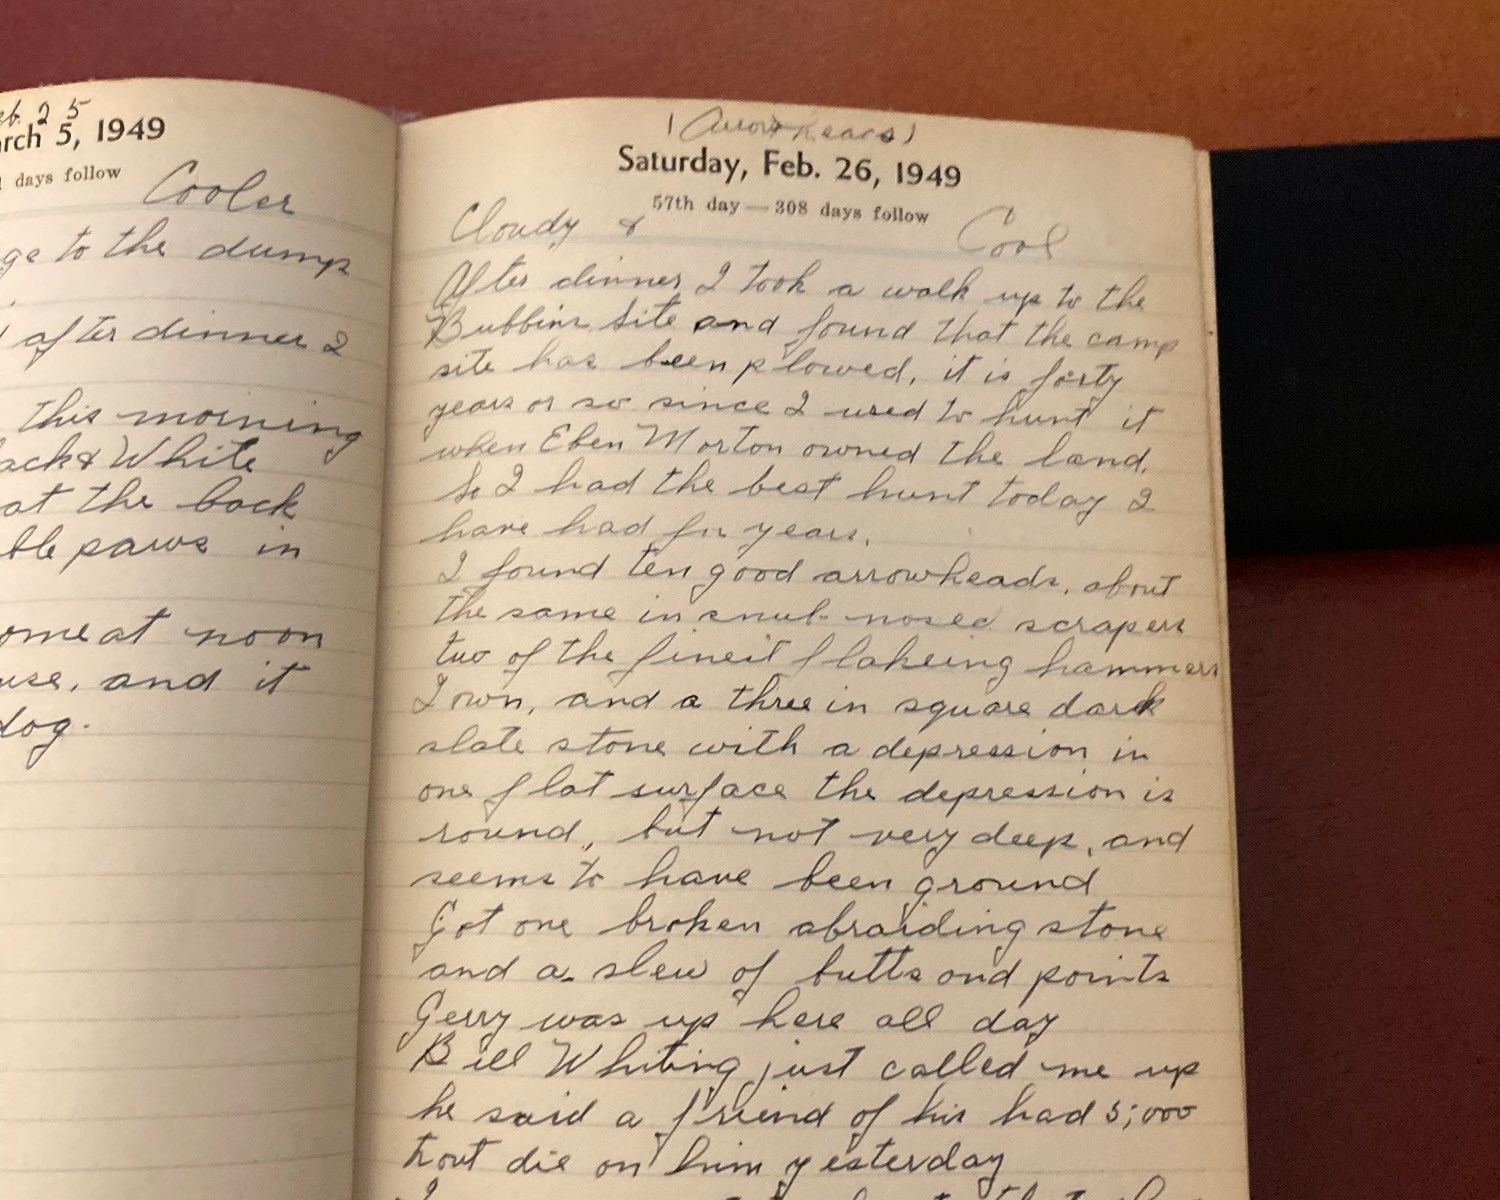 Feb. 25
March 5, 1949
days follow
Cooler
ge to the dump
after dinner I
this morning
ack & White
at the back
ble paws in
ome at noon
use, and it
dog.
(Arrowheads)
Saturday, Feb. 26, 1949
57th day — 308 days follow
Cloudy & Cool
After dinner I took a walk up to the
Bubbins site and found that the camp
site has been plowed, it is forty
years or so since I used to hunt it
when Eben Morton owned the land.
So I had the best hunt today I
have had for years.
I found ten good arrowheads, about
the same in snub-nosed scrapers
two of the finest flakeing hammers
I own, and a three in square dark
slate stone with a depression in
one flat surface the depression is
round, but not very deep, and
seems to have been ground
Got one broken abraiding stone
and a slew of butts and points
Gerry was up here all day
Bill Whiting just called me up
he said a friend of his had 5,000
trout die on him yesterday